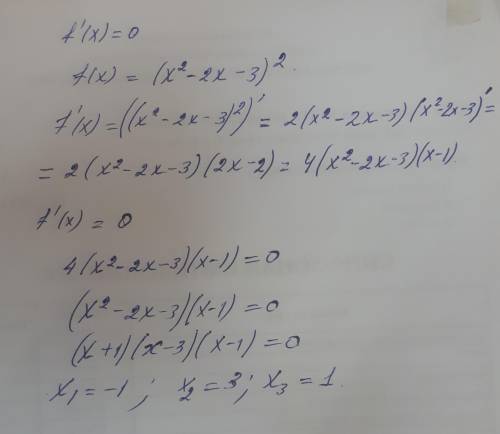 f'(x) = 0
f(x) = (x² - 2x - 3)².
f'(x) = ((x² - 2x - 3)²)' = 2(x² - 2x - 3)(x² - 2x - 3)' =
= 2(x² - 2x - 3)(2x - 2) = 4(x² - 2x - 3)(x - 1)
f'(x) = 0
4(x² - 2x - 3)(x - 1) = 0
(x² - 2x - 3)(x - 1) = 0
(x + 1)(x - 3)(x - 1) = 0
x₁ = -1 ; x₂ = 3 ; x₃ = 1.